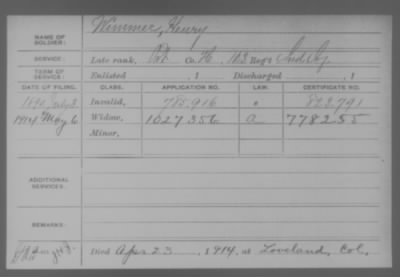 NAME OF SOLDIER: Wimmer, Henry
SERVICE: Late rank, Pvt Co. H, 103 Reg't Ind Inf
TERM OF SERVICE: Enlisted , 1 Discharged , 1
DATE OF FILING. CLASS. APPLICATION NO. LAW. CERTIFICATE NO.
1890 July Invalid, 785,916 "
1914 May 6 Widow, 1027356 a 778255
Minor,
ADDITIONAL SERVICES:
REMARKS:
Died Apr 23, 1914, at Loveland, Col.